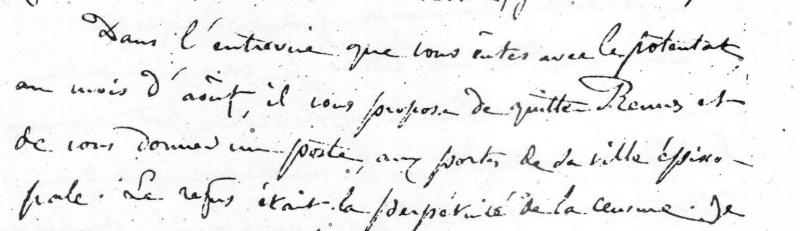 Dans l'entrevue que vous eûtes avec le potentat,
au mois d'août, il vous proposa de quitter Rennes et
de vous donner un poste, aux portes de sa ville épisco-
pale. Le refus était la perpétuité de la censure. Je